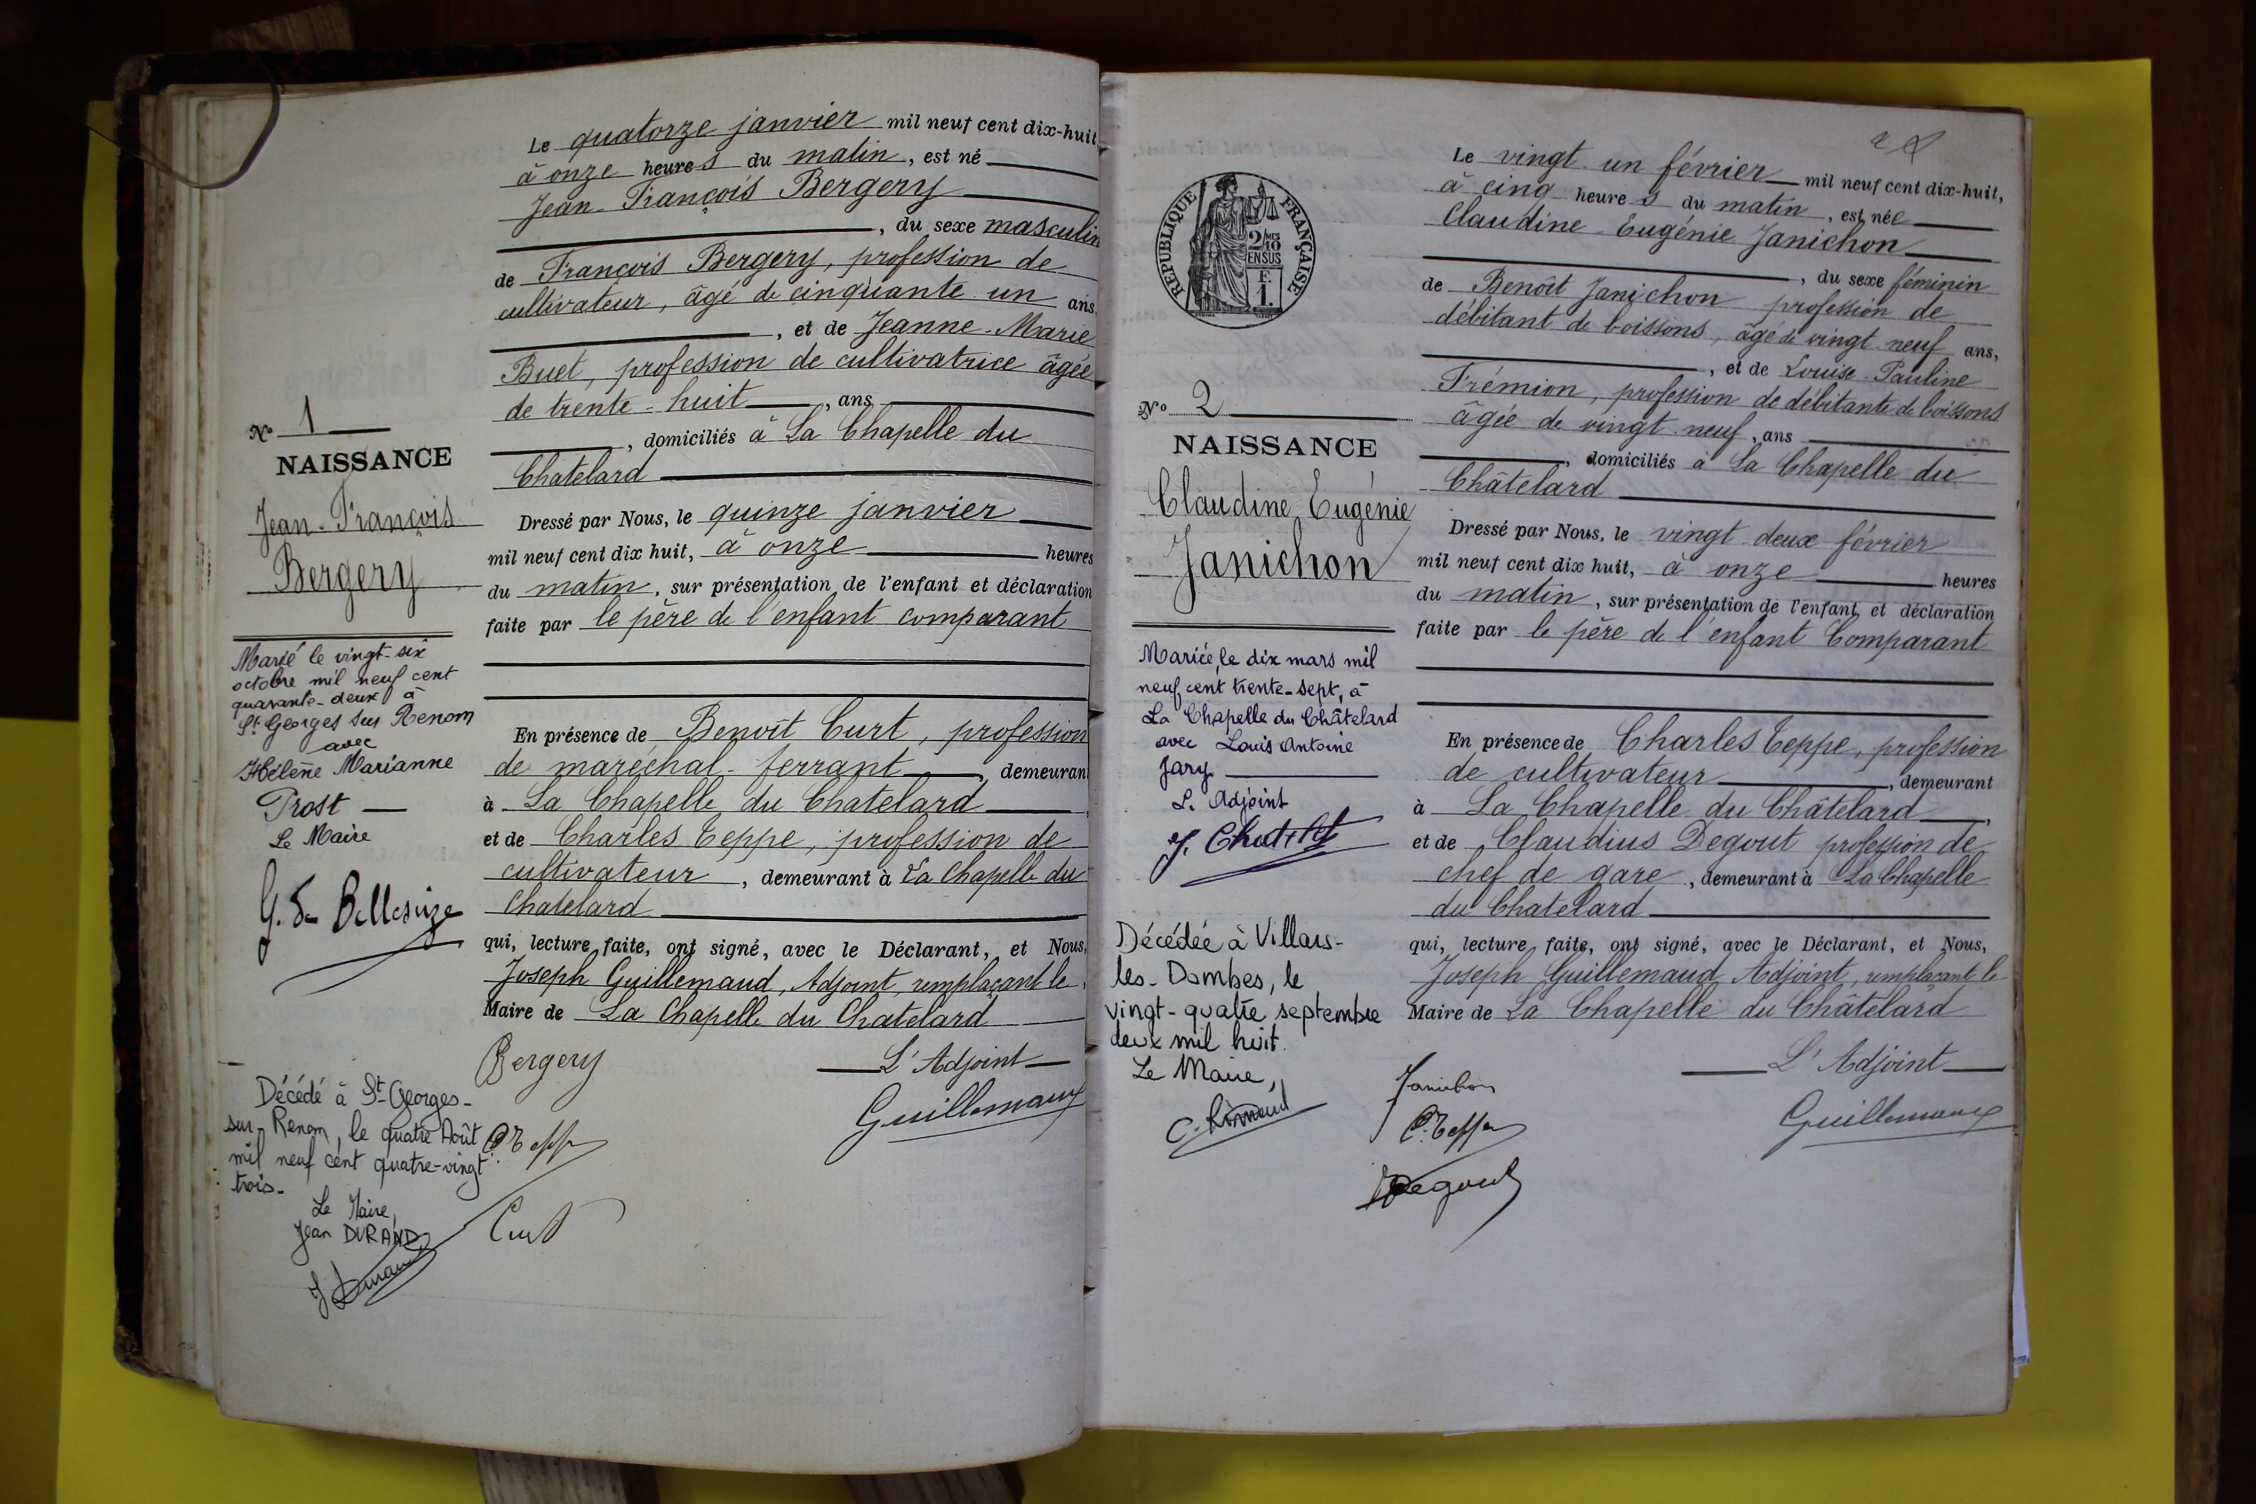 Le quatorze janvier mil neuf cent dix-huit
à onze heures du matin, est né
Jean-François Bergery
, du sexe masculin
de François Bergery, profession de
cultivateur, âgé de cinquante un ans
, et de Jeanne-Marie
Buet, profession de cultivatrice âgée
de trente-huit, ans
, domiciliés à La Chapelle du
Chatelard
Dressé par Nous, le quinze janvier
mil neuf cent dix huit, à onze heures
du matin, sur présentation de l'enfant et déclaration
faite par le père de l'enfant comparant
En présence de Benoît Curt, profession
de maréchal-ferrant, demeurant
à La Chapelle du Chatelard
et de Charles Teppe, profession de
cultivateur, demeurant à La Chapelle du
Chatelard
qui, lecture faite, ont signé, avec le Déclarant, et Nous,
Joseph Guillemaud, Adjoint, remplaçant le
Maire de La Chapelle du Chatelard
Bergery
L'Adjoint
Guillemaud
C. Teppe
Curt
No 1
NAISSANCE
Jean-François
Bergery
Marié le vingt-six
octobre mil neuf cent
quarante-deux à
St Georges sur Renom
avec
Hélène Marianne
Prost
Le Maire
G. de Bellescize
Décédé à St-Georges-
sur-Renom, le quatre Août
mil neuf cent quatre-vingt
trois-
Le Maire,
Jean DURAND
J Durand
2
RÉPUBLIQUE FRANÇAISE
2/10
EN SUS
F.
1.
No 2
NAISSANCE
Claudine Eugénie
Janichon
Mariée, le dix mars mil
neuf cent trente-sept, à
La Chapelle du Châtelard
avec Louis Antoine
Jary
L. Adjoint
Décédée à Villars-
les-Dombes, le
vingt-quatre septembre
deux mil huit.
Le Maire,
Le vingt un février mil neuf cent dix-huit,
à cinq heures du matin, est née
Claudine-Eugénie Janichon
, du sexe féminin
de Benoît Janichon profession de
débitant de boissons, âgé de vingt neuf ans,
, et de Louise-Pauline
Frémion, profession de débitante de boissons
âgée de vingt neuf, ans
, domiciliés à La Chapelle du
Châtelard
Dressé par Nous, le vingt deux février
mil neuf cent dix huit, à onze heures
du matin, sur présentation de l'enfant et déclaration
faite par le père de l'enfant Comparant
En présence de Charles Teppe, profession
de cultivateur, demeurant
à La Chapelle du Châtelard,
et de Claudius Degout profession de
chef de gare, demeurant à La Chapelle
du Chatelard
qui, lecture faite, ont signé, avec le Déclarant, et Nous,
Joseph Guillemaud, Adjoint, remplaçant le
Maire de La Chapelle du Châtelard
L'Adjoint
Janichon
Guillemaud
C. Teppe
Degout